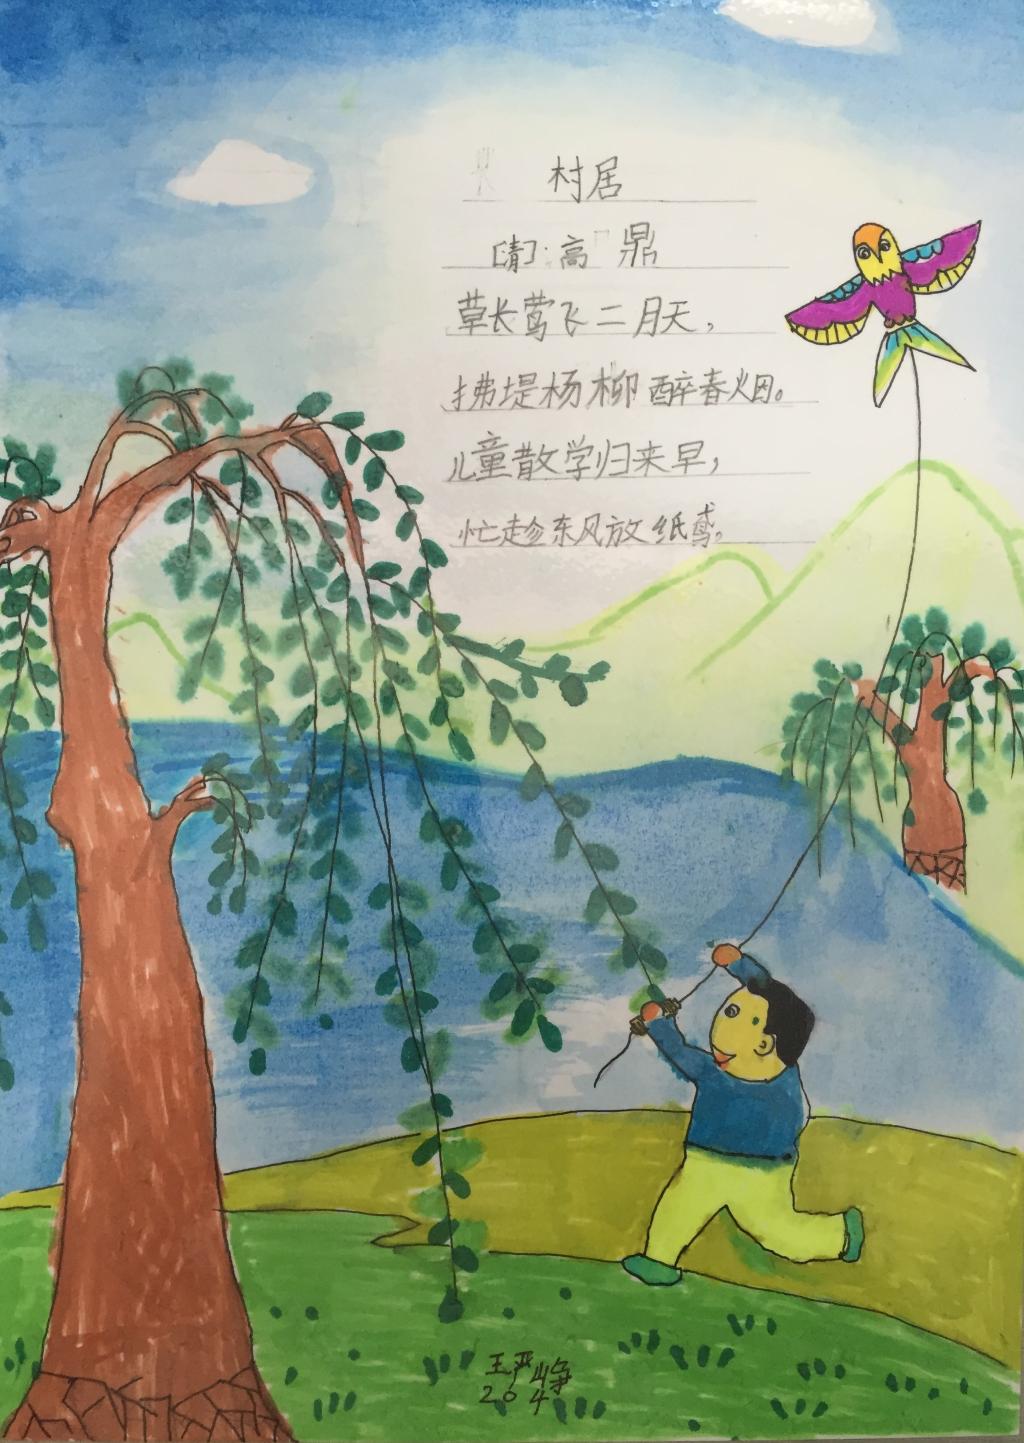 村居
[清]:高鼎
草长莺飞二月天，
拂堤杨柳醉春烟。
儿童散学归来早，
忙趁东风放纸鸢。
王严峥
204